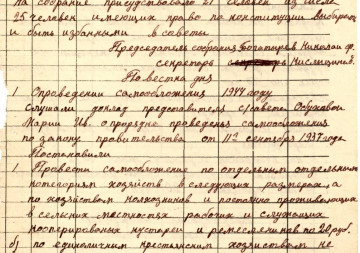 на собрание присудствовало 21 человек из числа
25 человек имеющих право по конституции выбирать
и быть избранными в советы
Председатель собрания Богатырев Николай Ф.
секретарь Кислицина
Повестка дня
1 Опроведении самообложения 1944 году
Слушали доклад председателя с/совета
Марии Ив. о порядке проведения самообложения
по закону правительства от 11 2 сентября 1937 года
Постановили
1 Провести самообложение по отдельным отдельным
категориям хозяйств в следующих размерах, а
по хозяйствам колхозников и постоянно проживающих
в сельских местностях рабочих и служащих
кооперированных кустарей и ремеслеников по 20 руб.
б) по единоличным крестьянским хозяйствам не